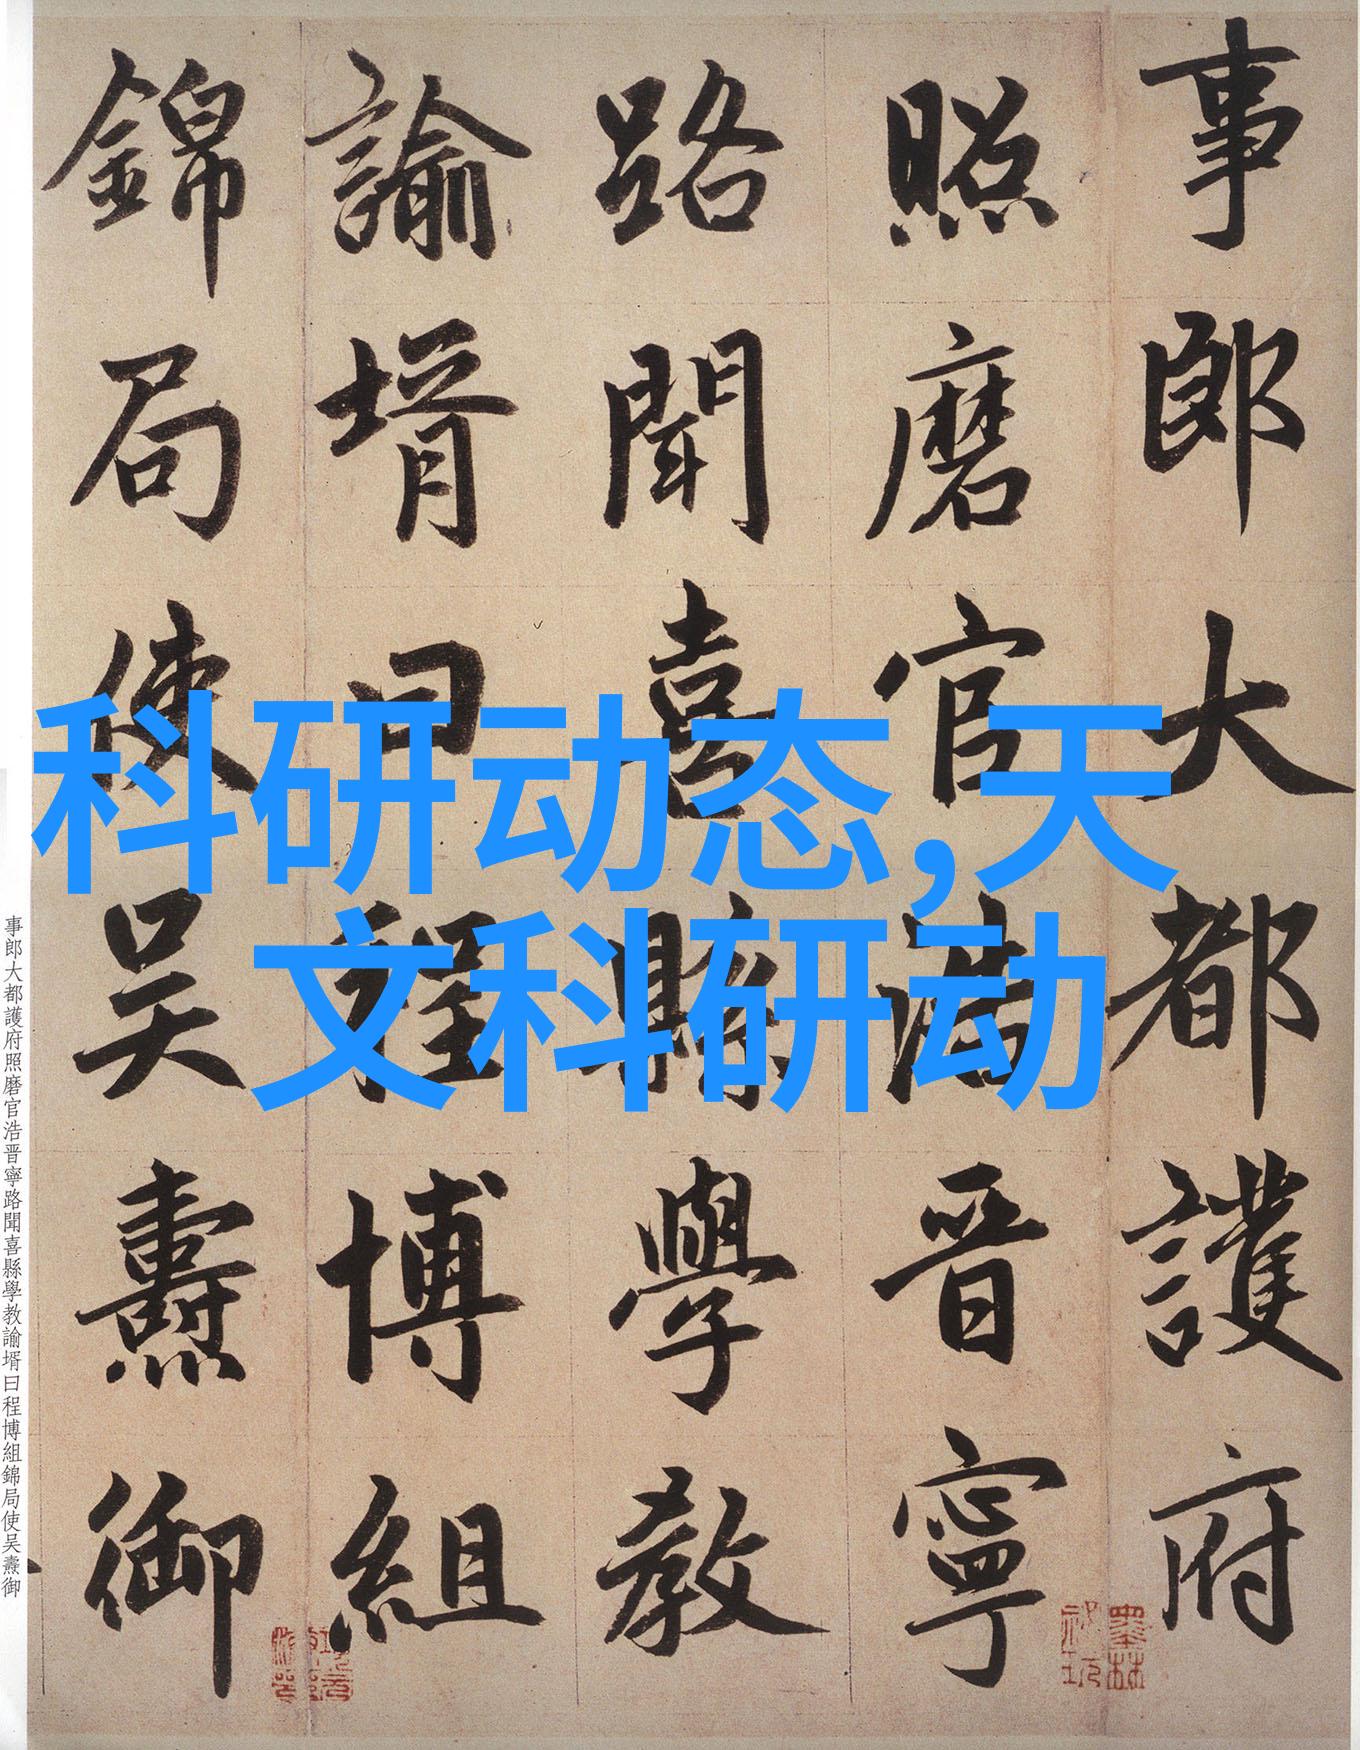 事郎大都護府
照磨官浩晋寧
路聞喜縣學教
諭壻曰程博組
錦局使吴燾御
科研动态,天
文科研动
事郎大都護府照磨官浩晋寧路聞喜縣學教諭壻曰程博組錦局使吴燾御